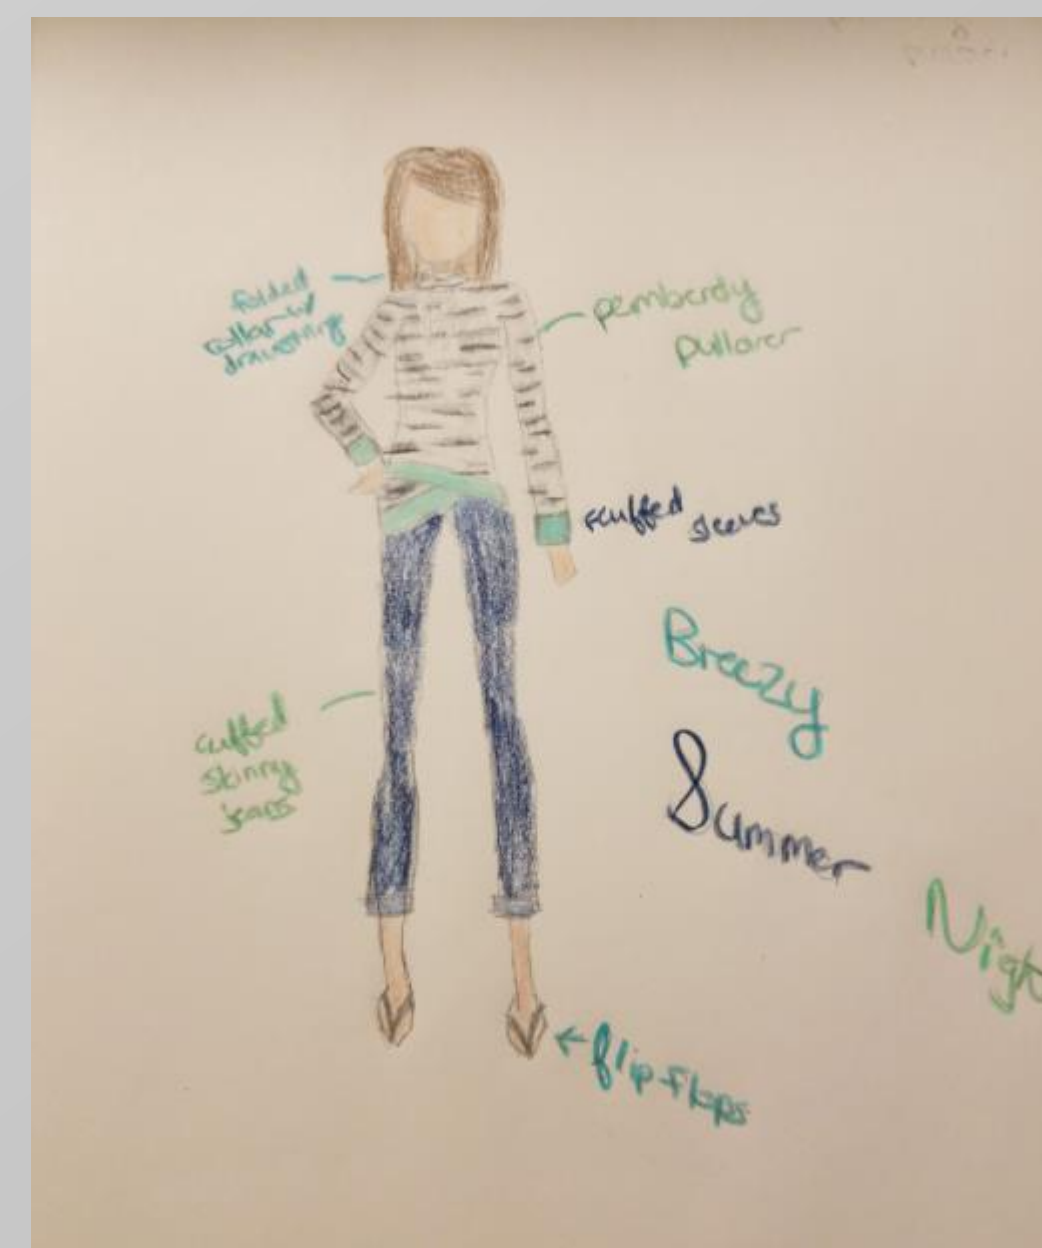 folded
collar w/
drawstring
pemberdy
pullover
cuffed
sleeves
Breezy
Summer
Nigh
cuffed
skinny
jeans
←flip-flops